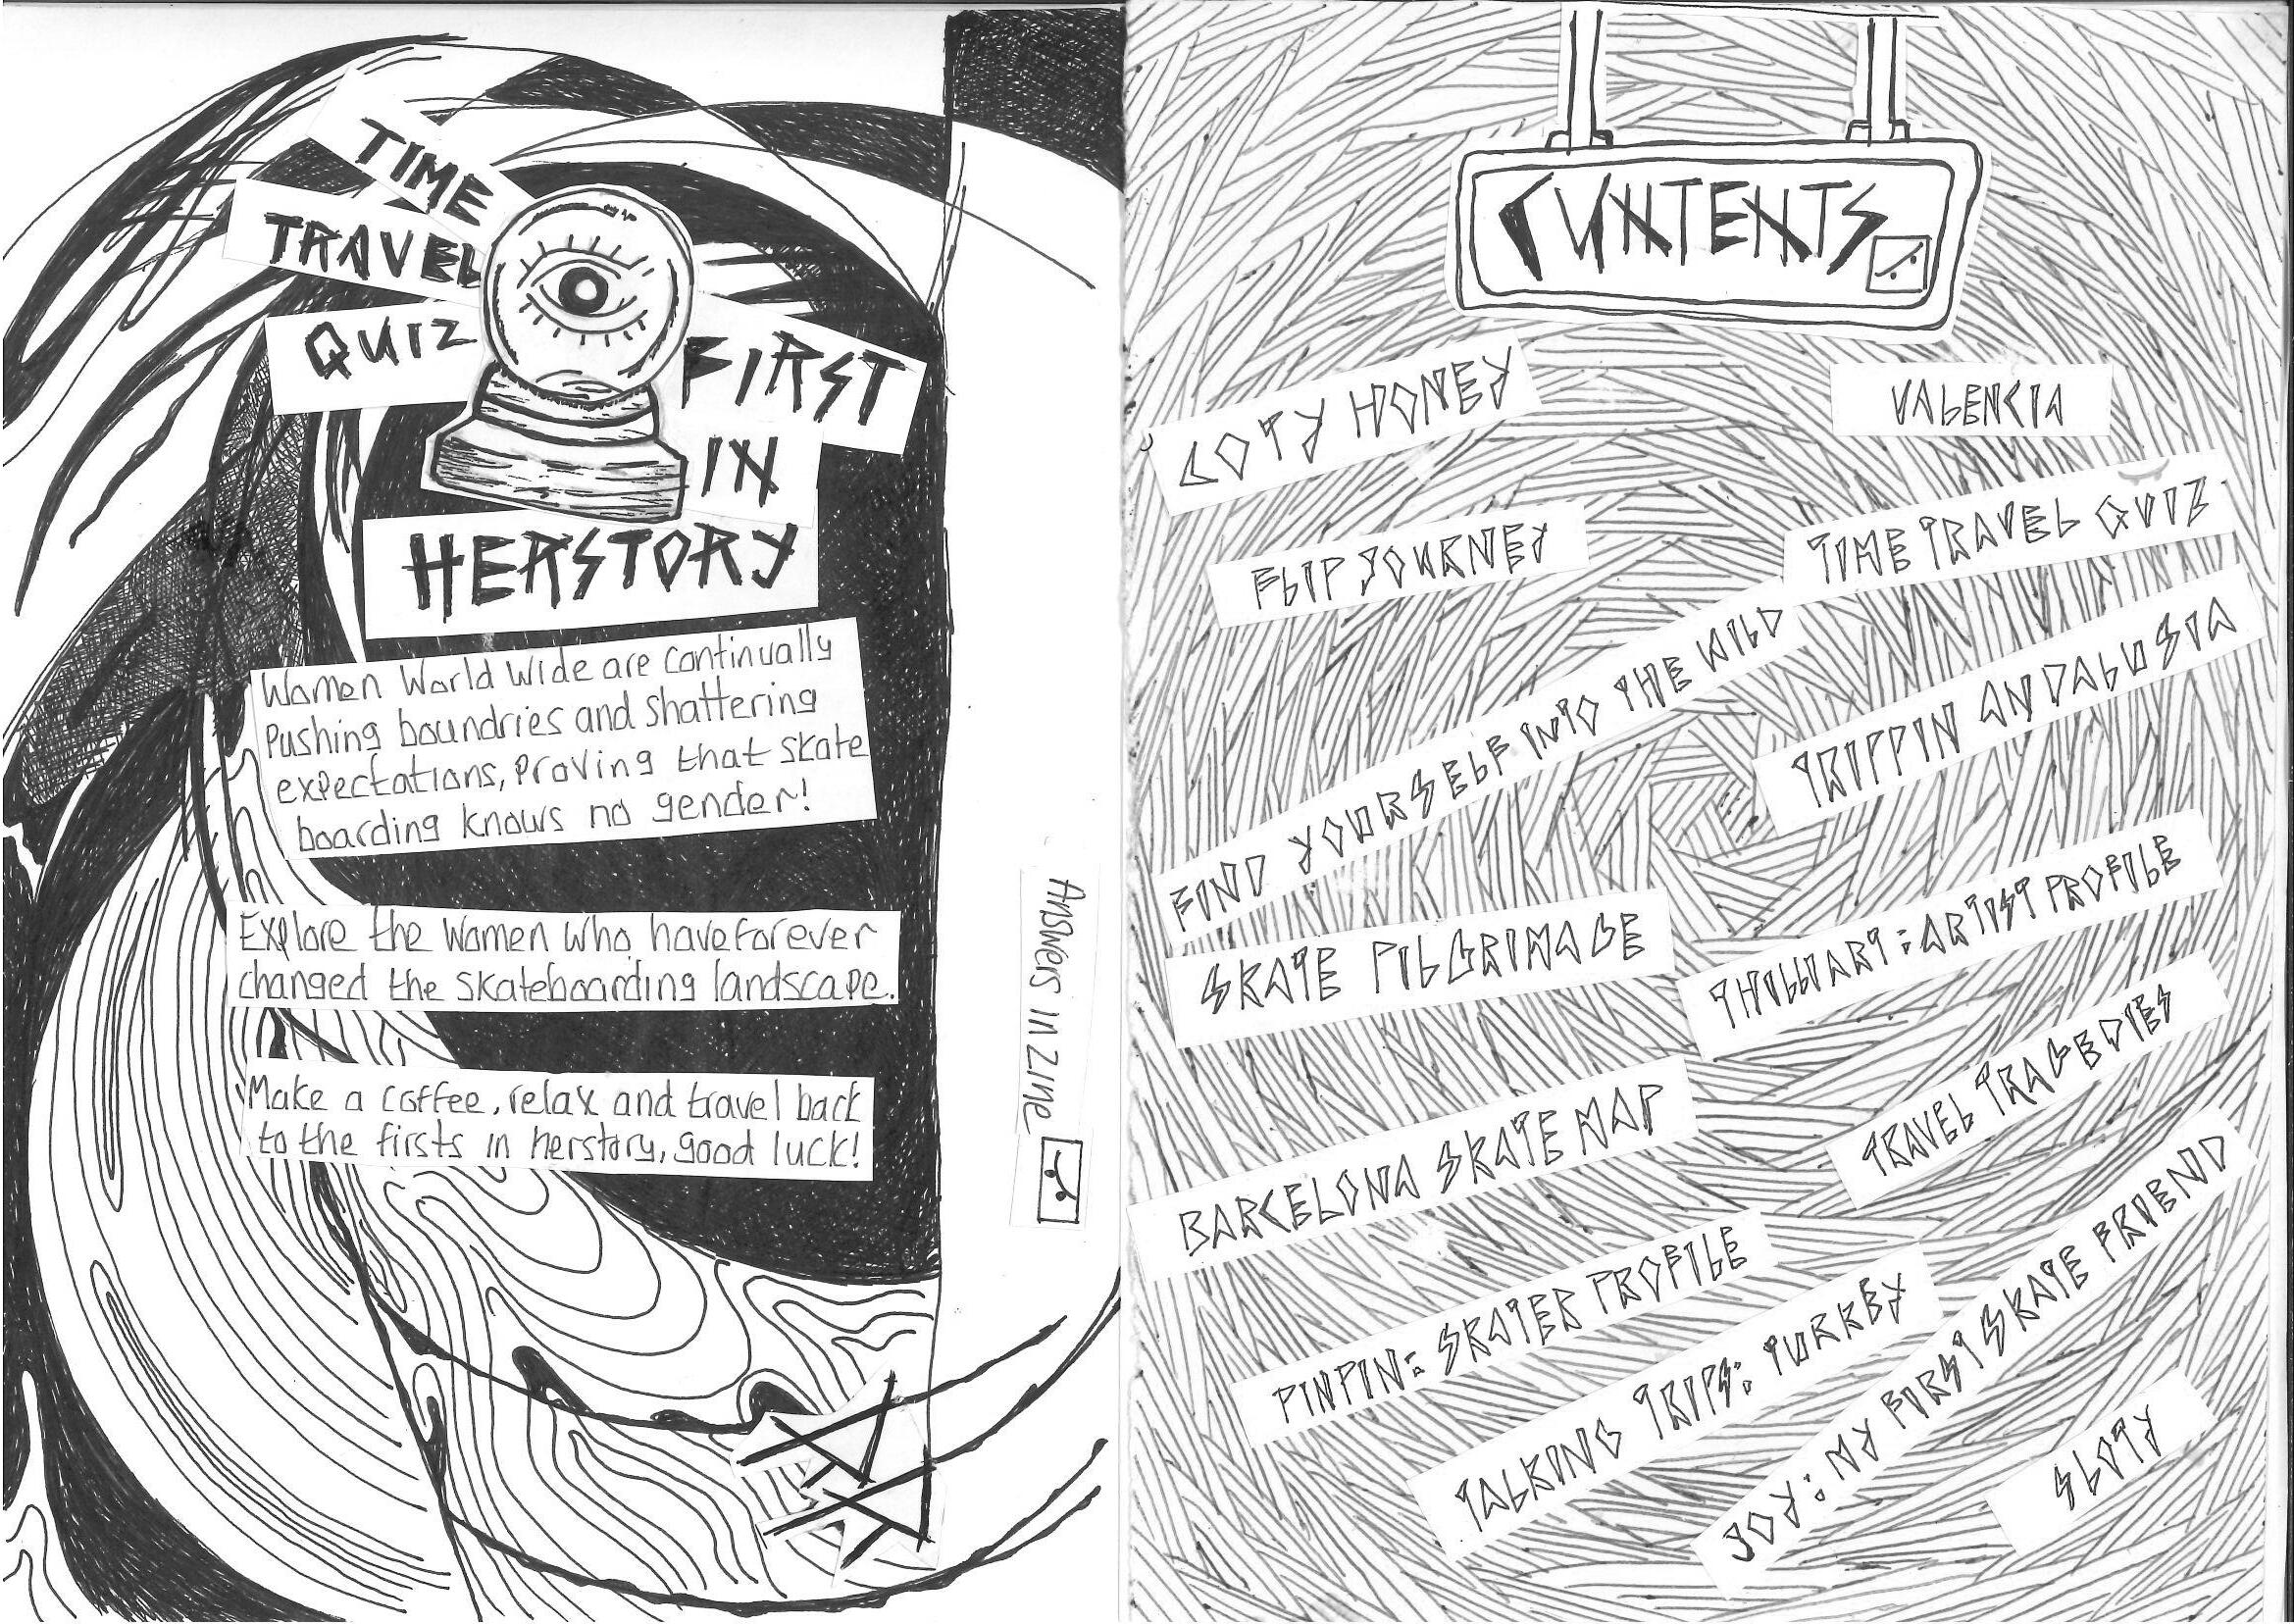 TIME
TRAVEL
QUIZ
FIRST
IN
HERSTORY
Women World Wide are continually
Pushing boundries and shattering
expectations, proving that skate
boarding knows no gender!
Explore the women who have forever
changed the skateboarding landscape.
Make a coffee, relax and travel back
to the firsts in herstory, good luck!
Answers in Zine
CUNTENTS
VALENCIA
COTY HONEY
TIME TRAVEL QUIZ
FLIP JOURNEY
FIND YOURSELF INTO THE WILD
TRIPPIN ANDALUSIA
SKATE PILGRIMAGE
THILLIART: ARTIST PROFILE
BARCELONA SKATE MAP
TRAVEL TRAGEDIES
PINPIN: SKATER PROFILE
TALKING TRIPS: TURKEY
JOY: MY FIRST SKATE FRIEND
SLOTY